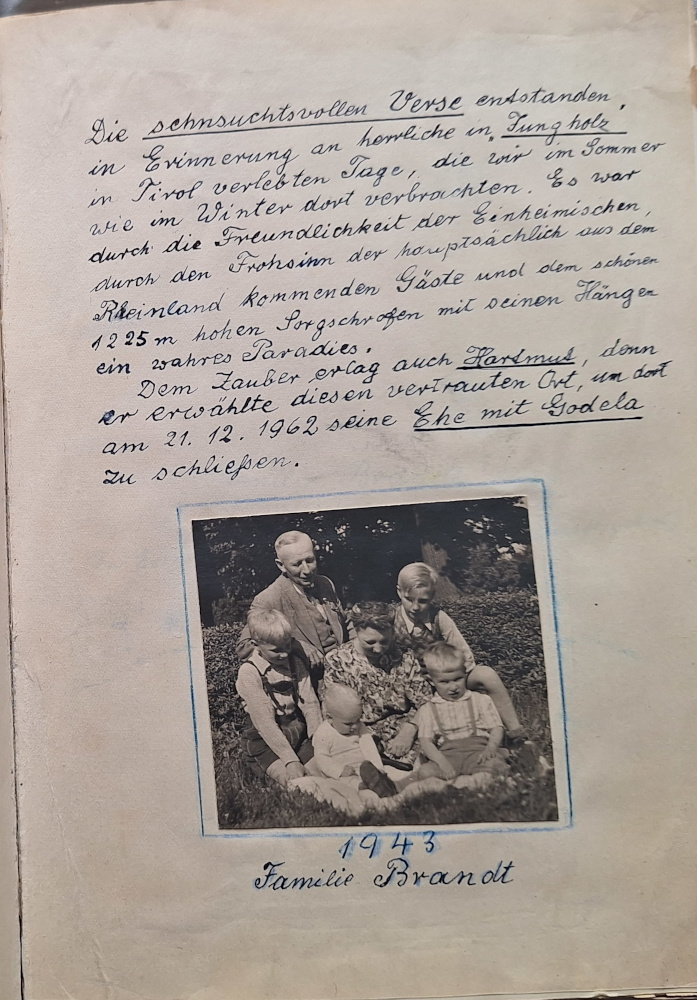 Die sehnsuchtsvollen Verse entstanden,
in Erinnerung an herrliche in „Jungholz
in Tirol verlebten Tage, die wir im Sommer
wie im Winter dort verbrachten. Es war
durch die Freundlichkeit der Einheimischen,
durch den Frohsinn der hauptsächlich aus dem
Rheinland kommenden Gäste und dem schönen
1225 m hohen Sorgschrofen mit seinen Hängen
ein wahres Paradies.
Dem Zauber erlag auch Hartmut, denn
er erwählte diesen vertrauten Ort, um dort
am 21. 12. 1962 seine Ehe mit Godela
zu schließen.
1943
Familie Brandt